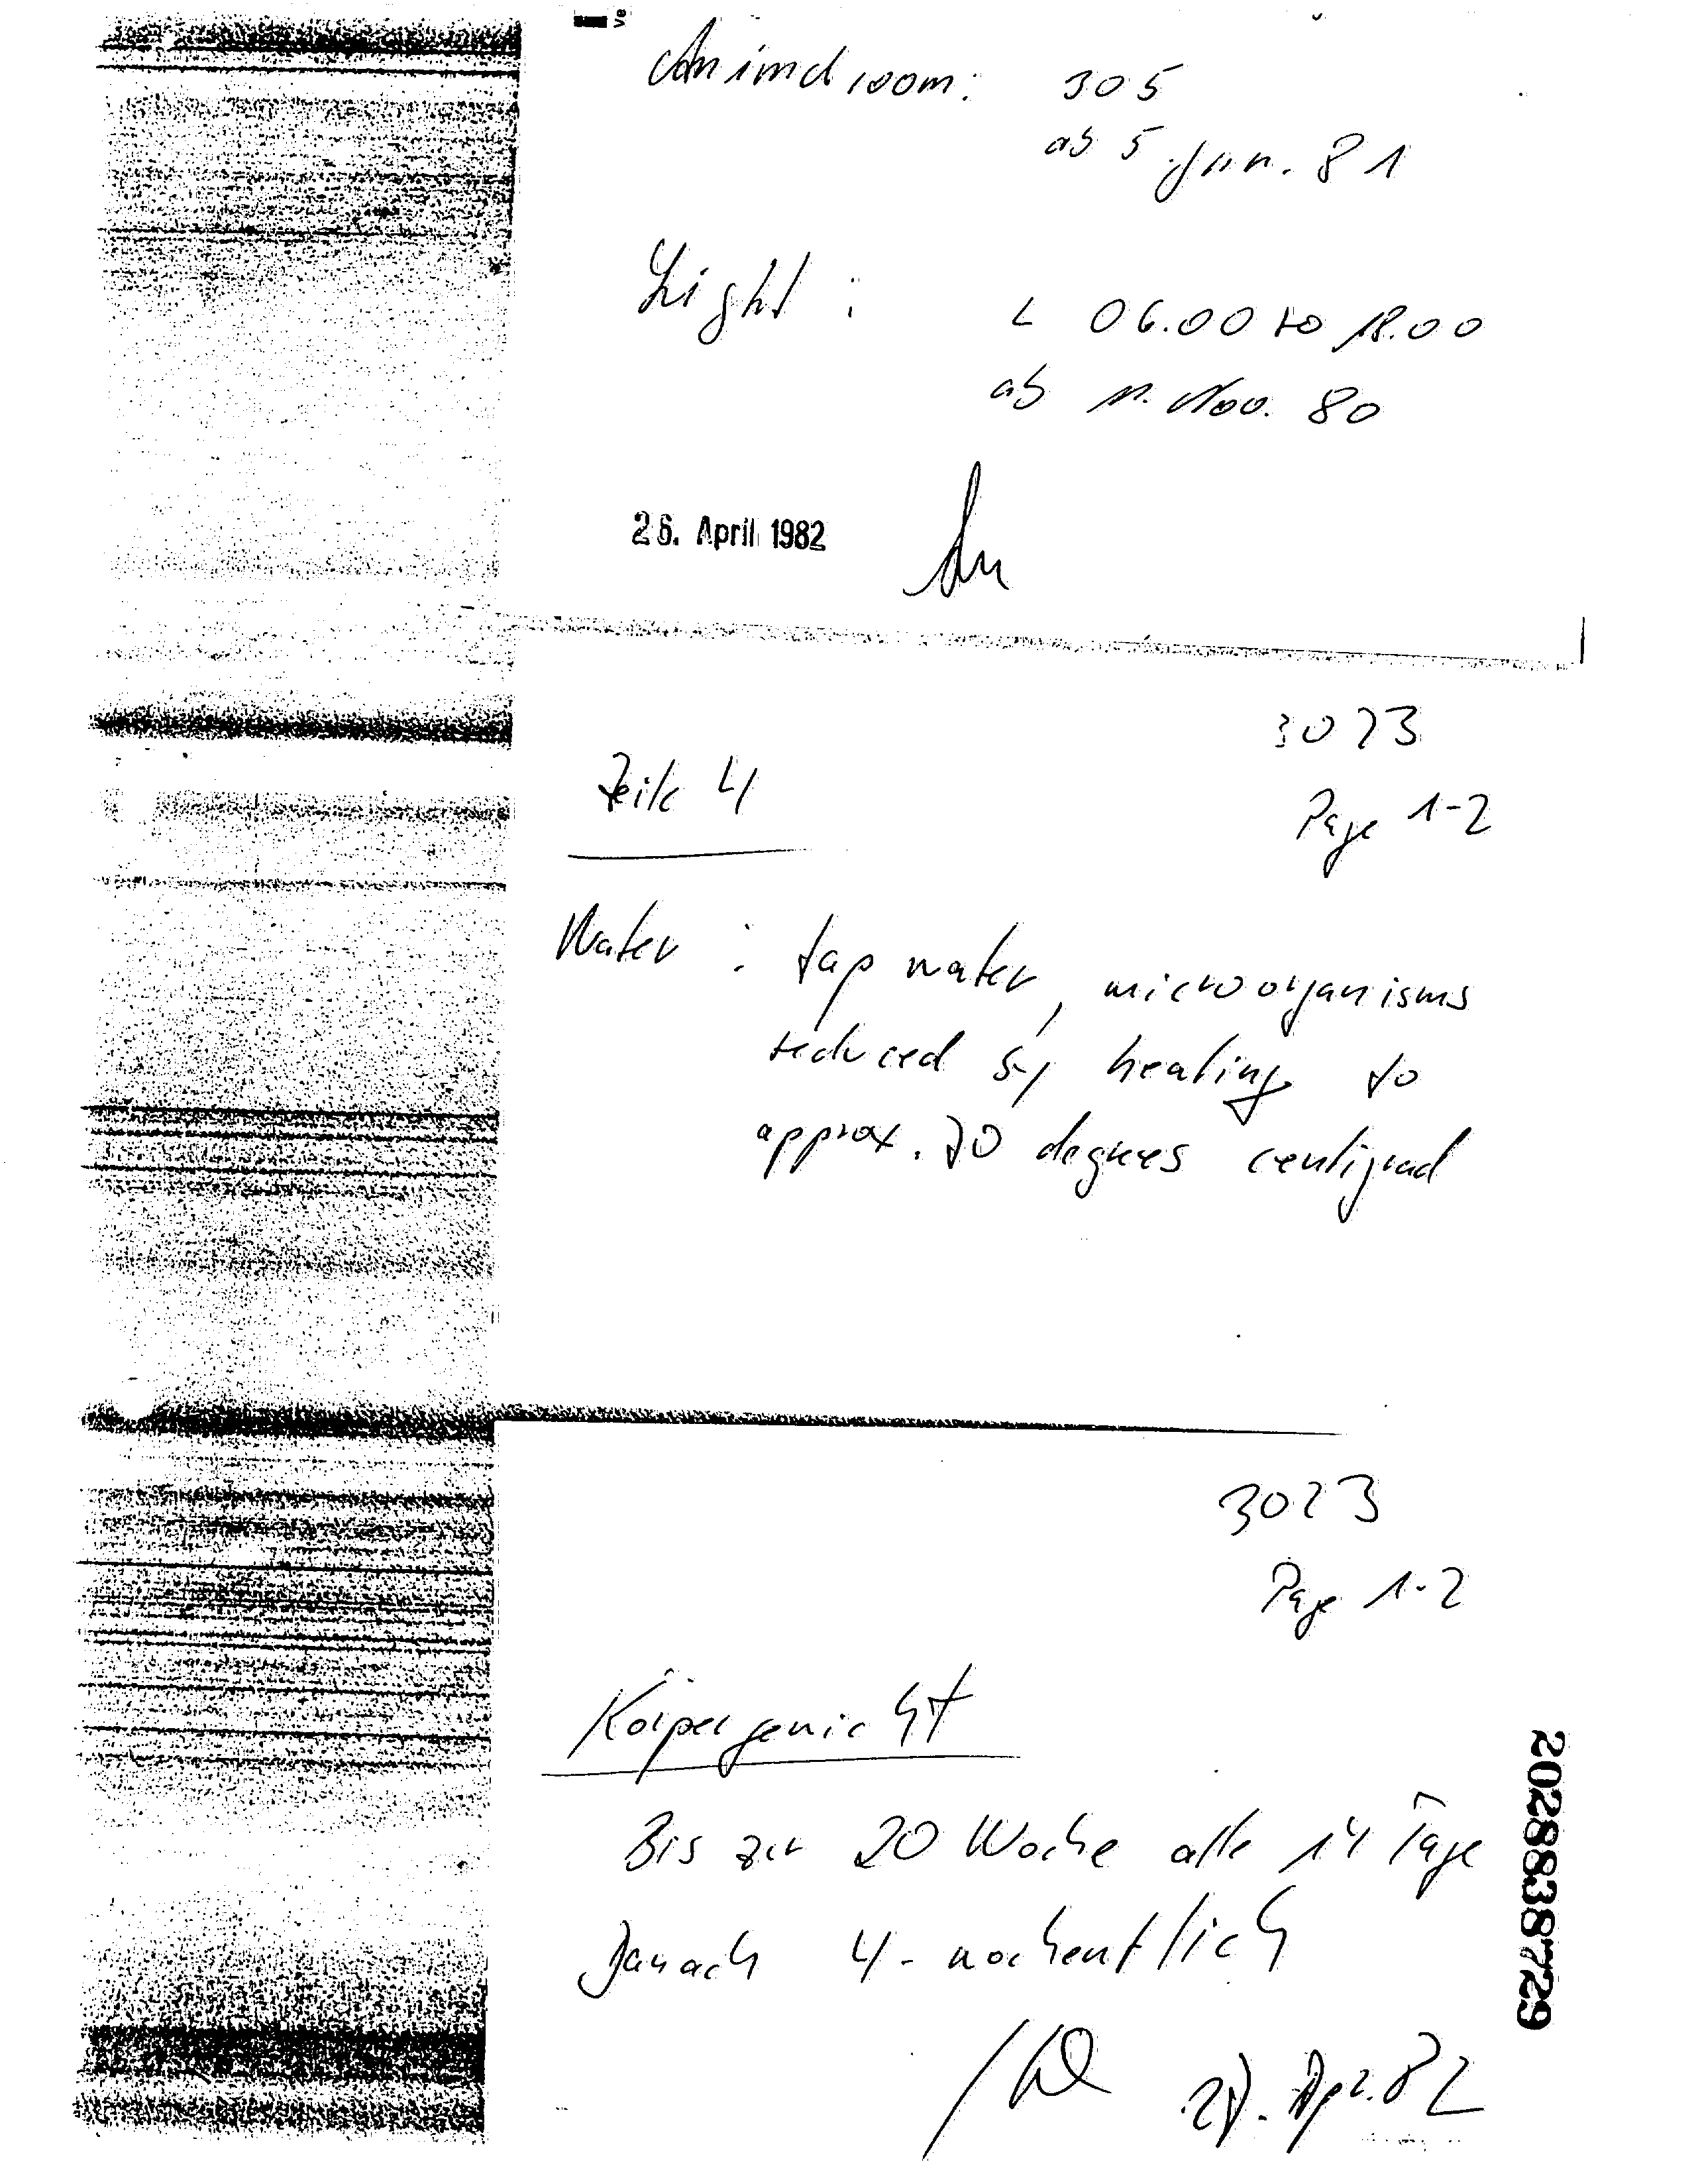 Ve
Animal room: 305
ab 5. Jan. 81
Light : L 06.00 to 18.00
ab 11. Nov. 80
26. April 1982
3023
Zeile 4
Page 1-2
Water : tap water, microorganisms
reduced by heating to
approx. 70 degrees centigrad
3023
Page 1-2
Körpergewicht
Bis zur 20 Woche alle 14 Tage
Danach 4-wochentlich
27. Apr. 82
2028838729